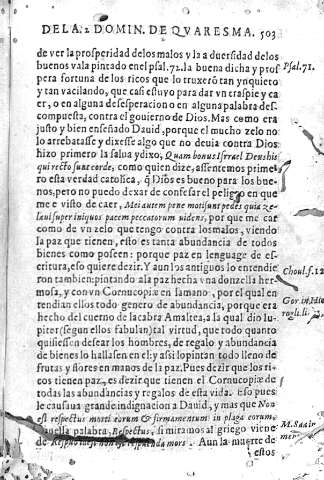 DE LA .2 DOMIN. DE QVARESMA. 503
de ver la prosperidad de los malos y la a duersidad de los
buenos va la pintado en el psal. 72. la buena dicha y pros
pera fortuna de los ricos que lo truxerõ tan ynquieto
y tan vacilando, que casi estuuo para dar vn traspie y ca
er, o en alguna desesperacion o en alguna palabra des-
compuesta, contra el gouierno de Dios. Mas como era
justo y bien enseñado Dauid, porque el mucho zelo no
lo arrebatasse y dixesse algo que no deuia contra Dios
hizo primero la salua y dixo, Quam bonus Israel Deus his
qui recto sunt corde, como quien dize, assentemos prime-
ro esta verdad catolica, q̃ Dios es bueno para los bue-
nos, pero no puedo dexar de confesar el peligro en que
me e visto de caer, Mei autem pene moti sunt pedes quia ze-
laui super iniquos pacem peccatorum uidens, por que me car
come de vn zelo que tengo contra los malos, viendo
la paz que tienen, esto es tanta abundancia de todos
bienes como poseen: porque paz en lenguage de es-
critura, eso quiere dezir. Y aun los antiguos lo entendie
ron tambien: pintando a la paz hecha vna donzella her-
mosa, y con vn Cornucopiæ en la mano, por el qual en
tendian ellos todo genero de abundancia, porque era
hecho del cuerno de la cabra Amaltea, a la qual dio Iu-
piter (segun ellos fabulan) tal virtud, que todo quanto
quisiessen desear los hombres, de regalo y abundancia
de bienes lo hallasen en el: y assi lo pintan todo lleno de
frutas y flores en manos de la paz. Pues dezir que los ri-
cos tienen paz, es dezir que tienen el Cornucopiæ de
todas las abundancias y regalos de esta vida. Eso pues
le causaua grande indignacion a Dauid, y mas que Non
est respectus morti eorum & firmamentum in plaga eorum,
aquella palabra, Respectus, si miramos al griego viene
de mors. Aun la muerte de
estos
Psal. 71.
Choul. f. 12